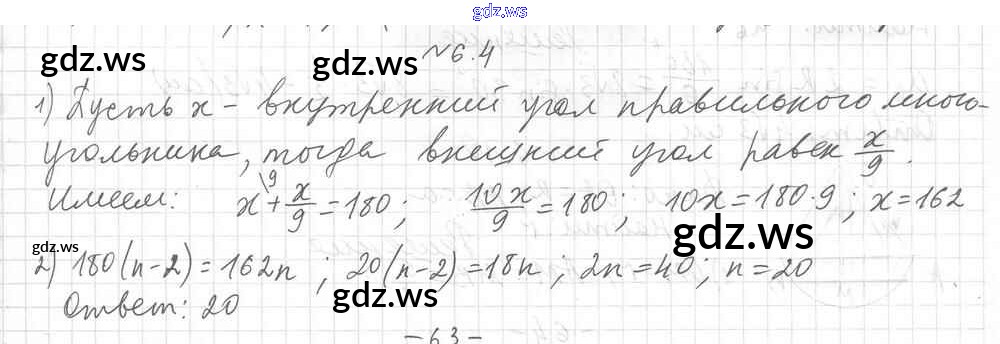 gdz.ws
№6.4
gdz.ws gdz.ws
1) Пусть x - внутренний угол правильного много-
угольника, тогда внешний угол равен x/9.
Имеем: x\9 + x/9 = 180; 10x/9 = 180; 10x = 180·9; x = 162
gdz.ws gdz.ws
2) 180(n-2) = 162n; 20(n-2) = 18n; 2n = 40; n = 20
Ответ: 20
gdz.ws gdz.ws
- 63 -